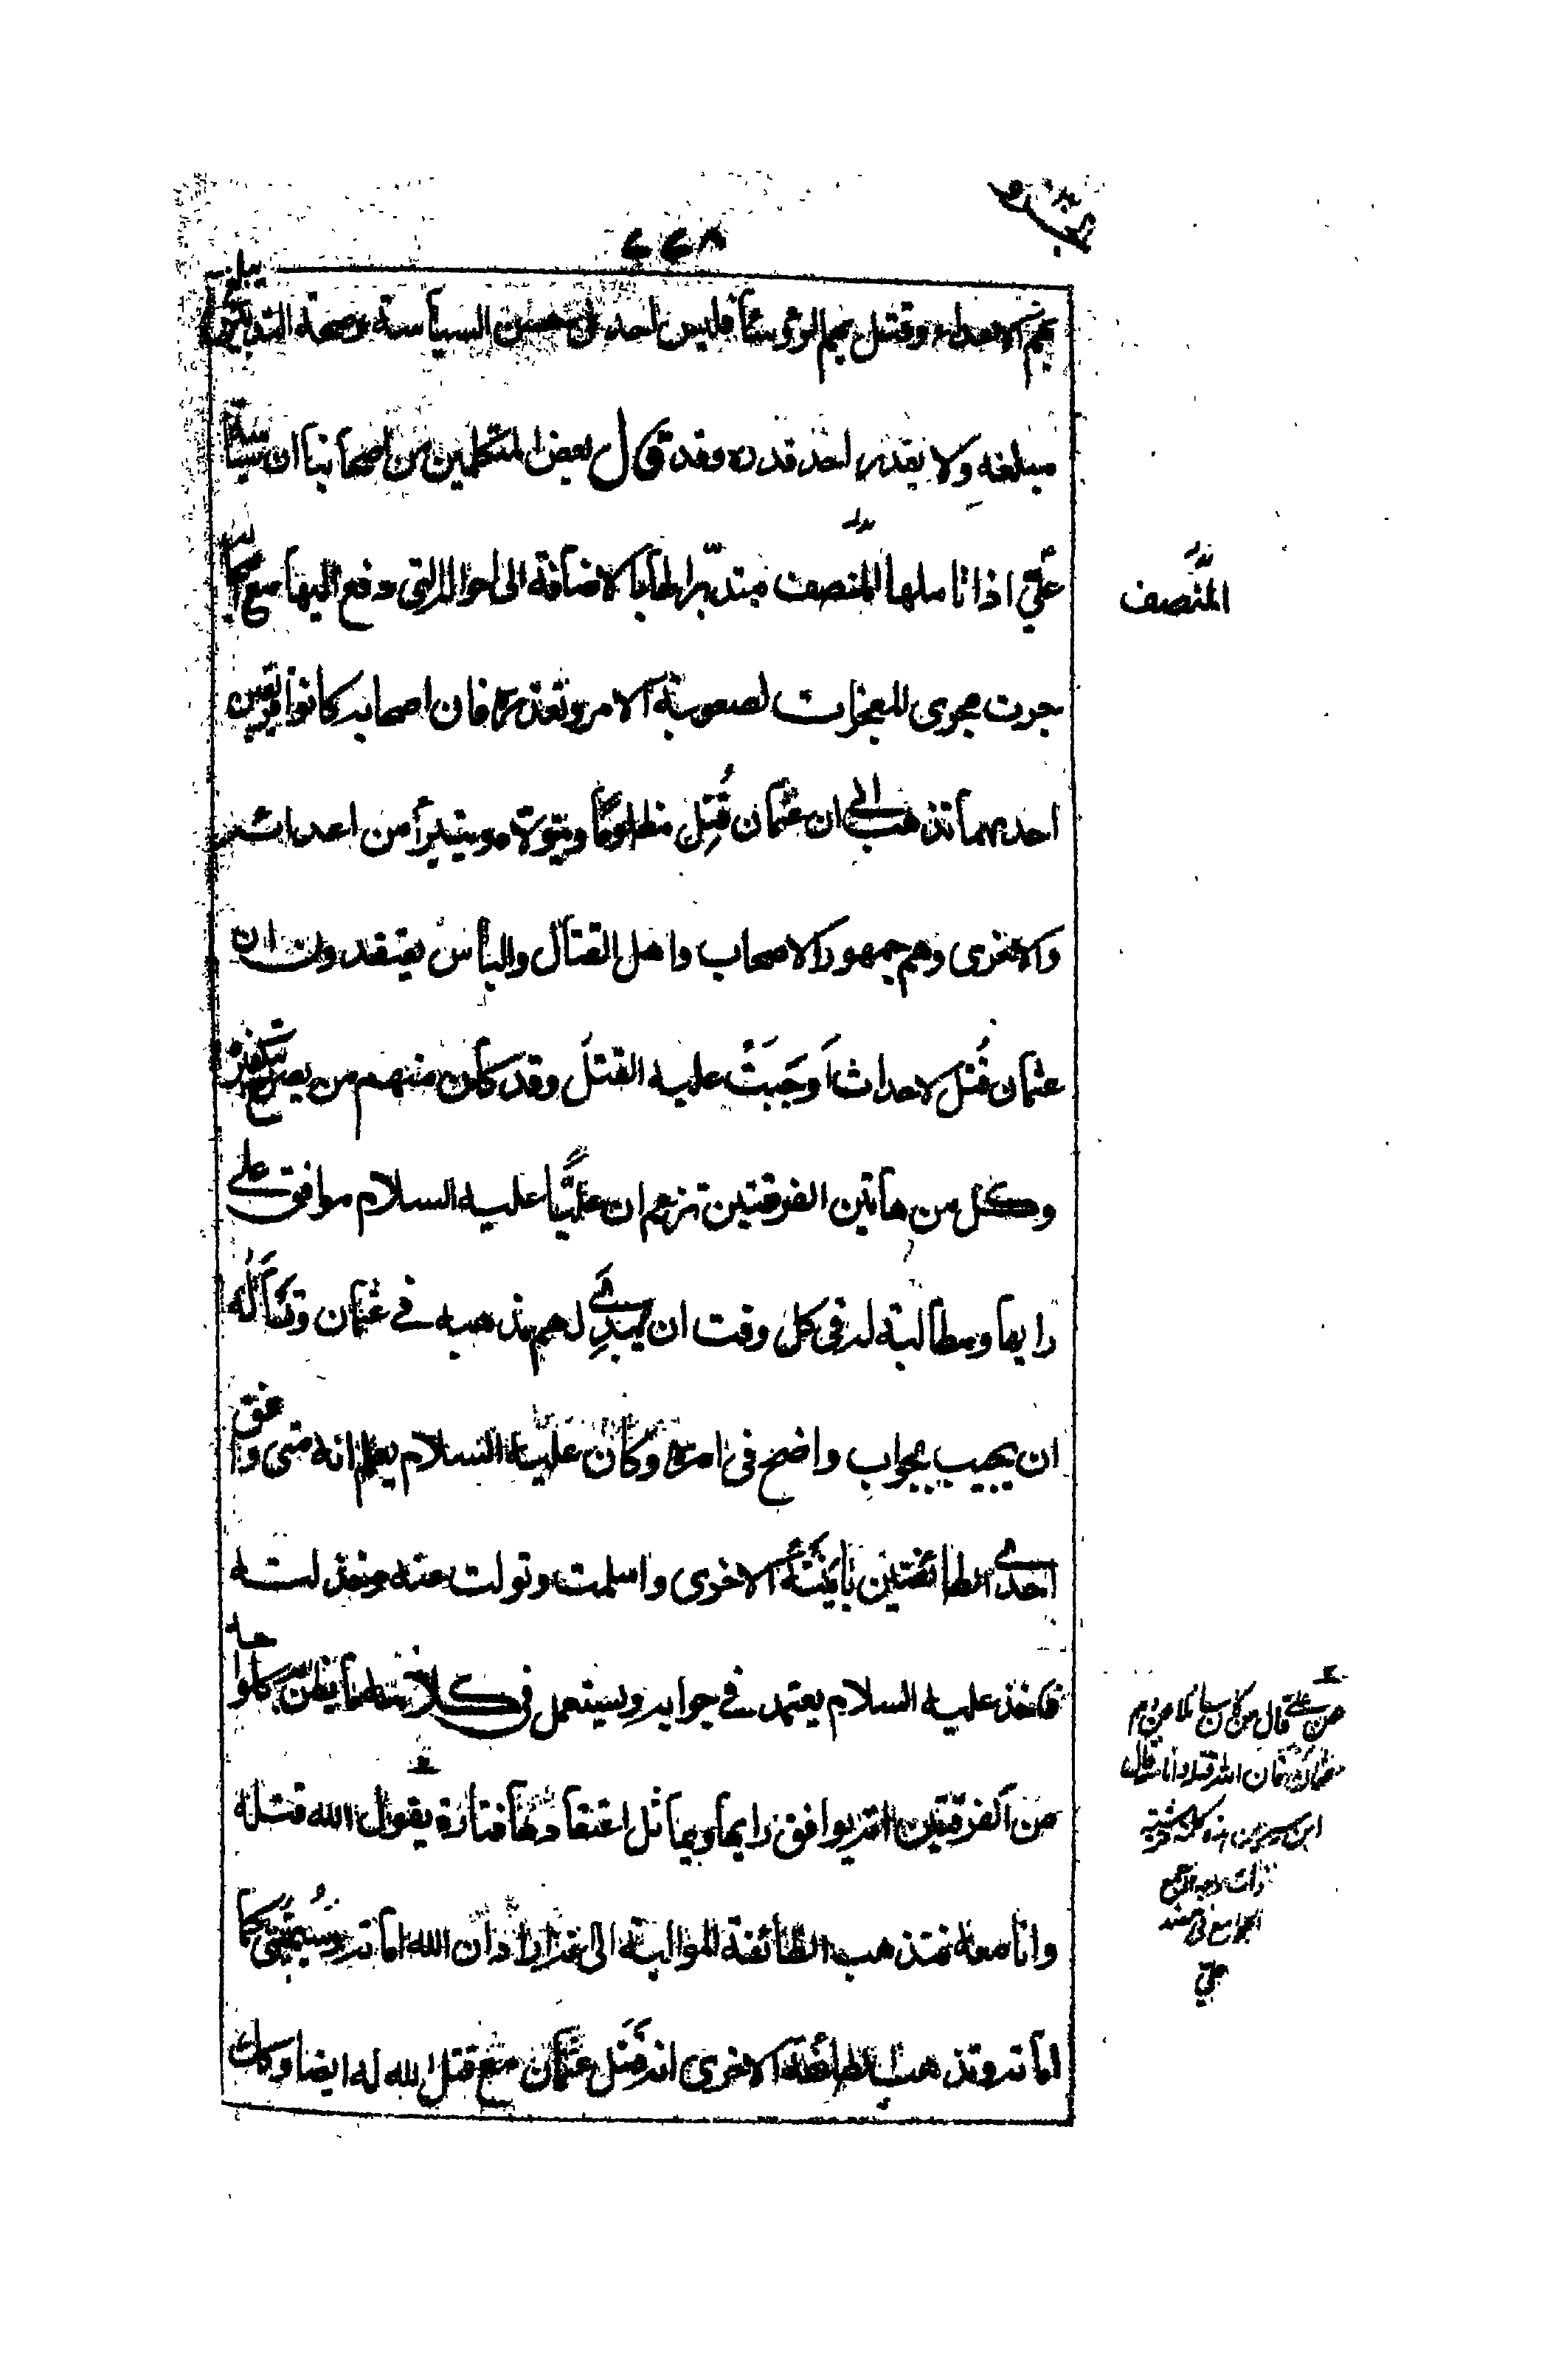 ٤٤٨
بهم الاعداء وقتل بهم الرؤساء فليس احد فى حسن السياسة وصحة التدبير يبلغ
مبلغه ولا يقدر احد قدره وقد قال بعض المتكلمين من اصحابنا ان سياسة
علىّ اذا تاملها المنصف متدبّرا لها بالاضافة الى احواله التى دفع اليها مع اصحابه
جرت مجرى المعجزات لصعوبة الامر وتعذره فان اصحابه كانوا فرقتين
احديهما تذهب الى ان عثمان قُتِل مظلومًا وتتولاه وتتبرأ من اعدائه
والاخرى وهم جمهور الاصحاب واهل القتال والبأس يعتقدون ان
عثمان قُتل لاحداث اَوجَبَتْ عليه القتل وقد كان منهم من يصرح بتكفيره
وكل من هاتين الفرقتين تزعم ان عليًّا عليه السلام موافق على
رايها ومطالبة له فى كل وقت ان يُبدِى لهم مذهبه فى عثمان وتسأَلُه
ان يجيب بجواب واضح فى امره وكان عليه السلام يعلم انه متى وافق
احدى الطائفتين باينَتْهُ الاخرى واسلمت وتولت عنه وخذلته
فاخذ عليه السلام يعتمد فى جوابه ويستعمل فى كلامه ما يظنّ به كل واحدة
من الفرقتين انه يوافق رايها ويماثل اعتقادها فتارة يقول الله قتله
وانا معه فتذهب الطائفة الموالية الى انه اراد ان الله اماته وسيُميتُنى كما
اماته وتذهب الطائفة الاخرى الى انه قَتَل عثمان مع قتل الله له ايضا وكذلك
المنصف
عن على قال من كان سائلا عن دم
عثمان فان الله قتله وانا معه قال
ابن سيرين هذه كلمة
الجوامع فى مسند
علىّ